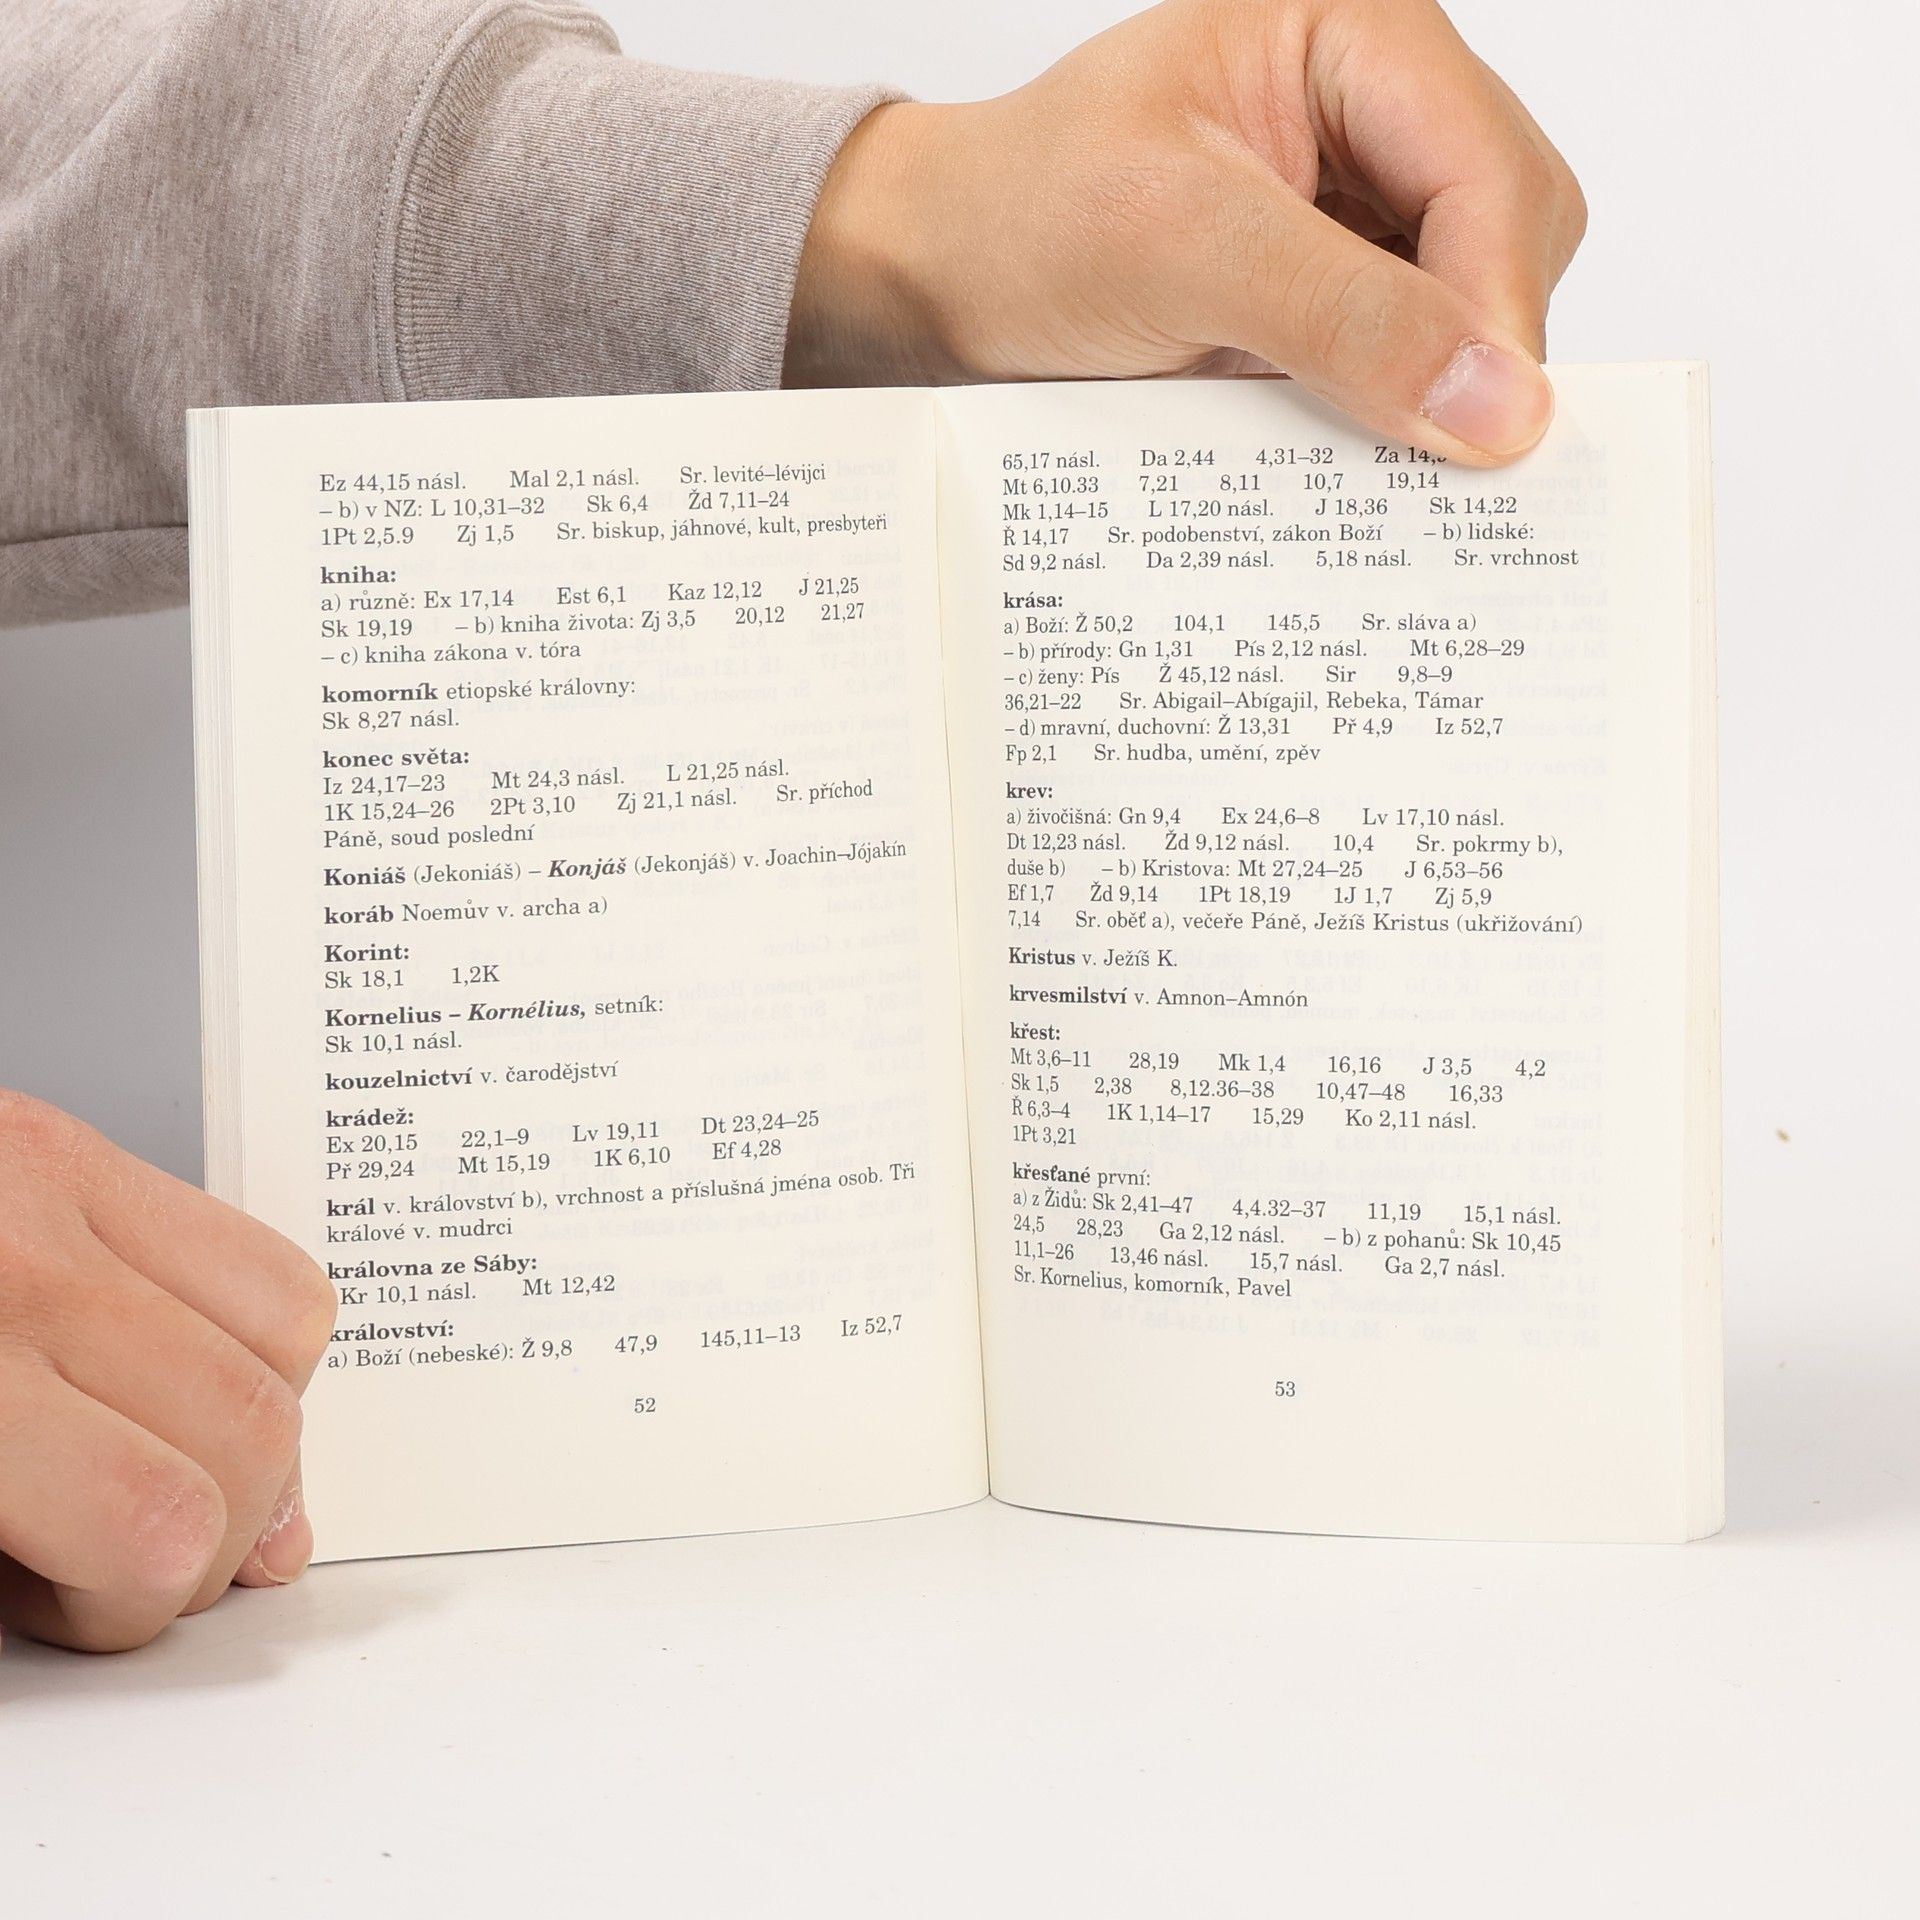 Ez 44,15 násl. Mal 2,1 násl. Sr. levité–lévijci
– b) v NZ: L 10,31–32 Sk 6,4 Žd 7,11–24
1Pt 2,5.9 Zj 1,5 Sr. biskup, jáhnové, kult, presbyteři
kniha:
a) různě: Ex 17,14 Est 6,1 Kaz 12,12 J 21,25
Sk 19,19 – b) kniha života: Zj 3,5 20,12 21,27
– c) kniha zákona v. tóra
komorník etiopské královny:
Sk 8,27 násl.
konec světa:
Iz 24,17–23 Mt 24,3 násl. L 21,25 násl.
1K 15,24–26 2Pt 3,10 Zj 21,1 násl. Sr. příchod
Páně, soud poslední
Koniáš (Jekoniáš) – Konjáš (Jekonjáš) v. Joachin–Jójakín
koráb Noemův v. archa a)
Korint:
Sk 18,1 1,2K
Kornelius – Kornélius, setník:
Sk 10,1 násl.
kouzelnictví v. čarodějství
krádež:
Ex 20,15 22,1–9 Lv 19,11 Dt 23,24–25
Př 29,24 Mt 15,19 1K 6,10 Ef 4,28
král v. království b), vrchnost a příslušná jména osob. Tři
králové v. mudrci
královna ze Sáby:
Kr 10,1 násl. Mt 12,42
království:
a) Boží (nebeské): Ž 9,8 47,9 145,11–13 Iz 52,7
52
65,17 násl. Da 2,44 4,31–32 Za
Mt 6,10.33 7,21 8,11 10,7 19,14
Mk 1,14–15 L 17,20 násl. J 18,36 Sk 14,22
Ř 14,17 Sr. podobenství, zákon Boží – b) lidské:
Sd 9,2 násl. Da 2,39 násl. 5,18 násl. Sr. vrchnost
krása:
a) Boží: Ž 50,2 104,1 145,5 Sr. sláva a)
– b) přírody: Gn 1,31 Pís 2,12 násl. Mt 6,28–29
– c) ženy: Pís Ž 45,12 násl. Sir 9,8–9
36,21–22 Sr. Abigail–Abígajil, Rebeka, Támar
– d) mravní, duchovní: Ž 13,31 Př 4,9 Iz 52,7
Fp 2,1 Sr. hudba, umění, zpěv
krev:
a) živočišná: Gn 9,4 Ex 24,6–8 Lv 17,10 násl.
Dt 12,23 násl. Žd 9,12 násl. 10,4 Sr. pokrmy b),
duše b) – b) Kristova: Mt 27,24–25 J 6,53–56
Ef 1,7 Žd 9,14 1Pt 18,19 1J 1,7 Zj 5,9
7,14 Sr. oběť a), večeře Páně, Ježíš Kristus (ukřižování)
Kristus v. Ježíš K.
krvesmilství v. Amnon–Amnón
křest:
Mt 3,6–11 28,19 Mk 1,4 16,16 J 3,5 4,2
Sk 1,5 2,38 8,12.36–38 10,47–48 16,33
Ř 6,3–4 1K 1,14–17 15,29 Ko 2,11 násl.
1Pt 3,21
křesťané první:
a) z Židů: Sk 2,41–47 4,4.32–37 11,19 15,1 násl.
24,5 28,23 Ga 2,12 násl. – b) z pohanů: Sk 10,45
11,1–26 13,46 násl. 15,7 násl. Ga 2,7 násl.
Sr. Kornelius, komorník, Pavel
53